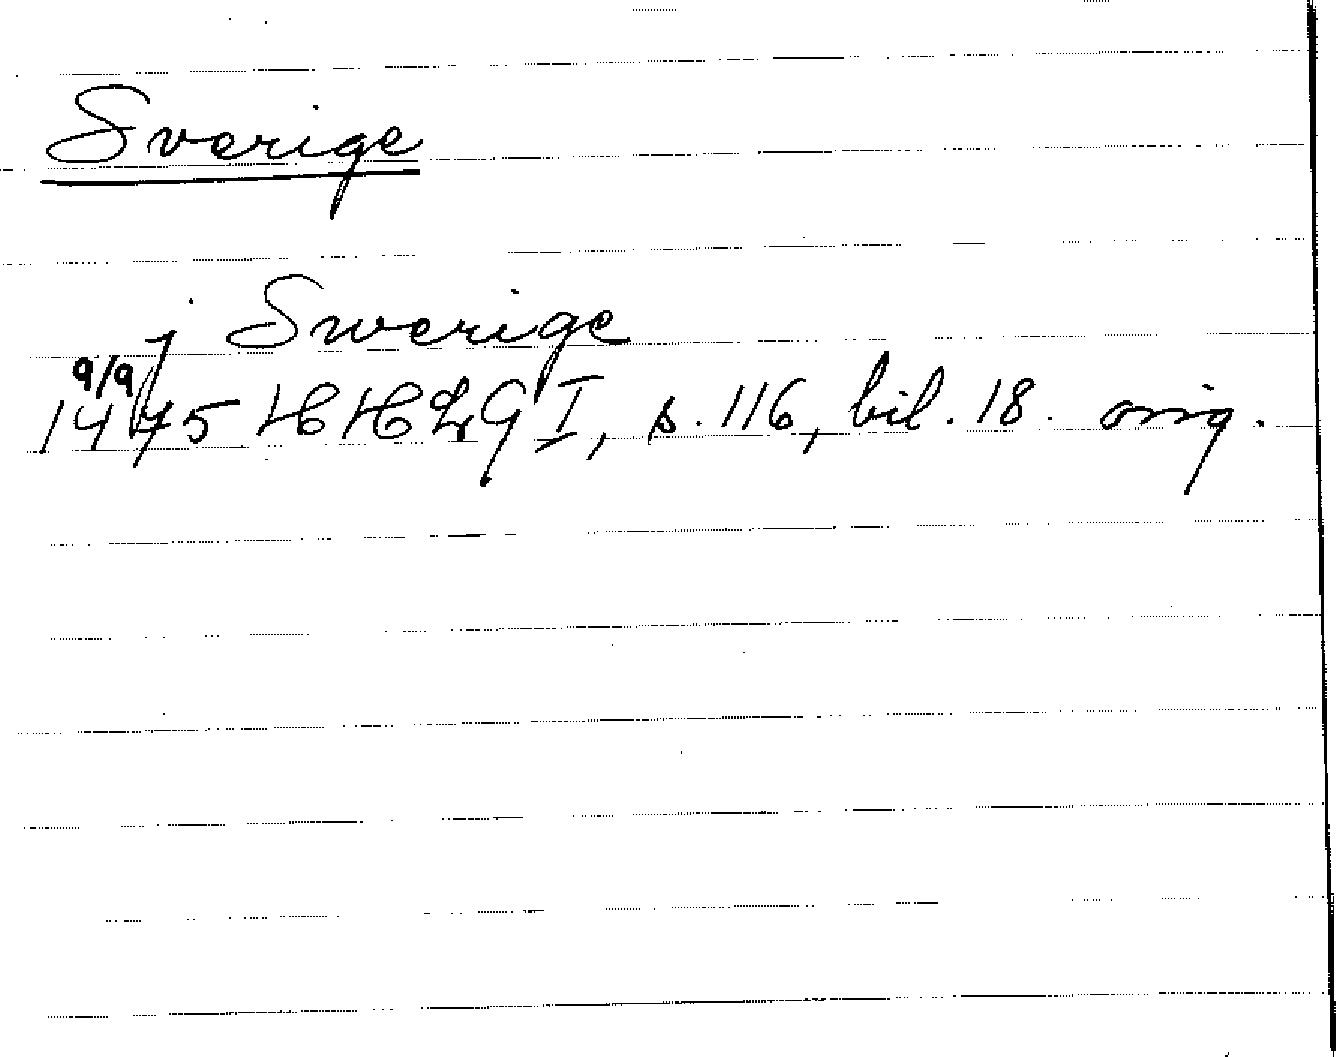 Sverige
j Swerige
9/9
1475 I, s. 116, bil. 18. orig.